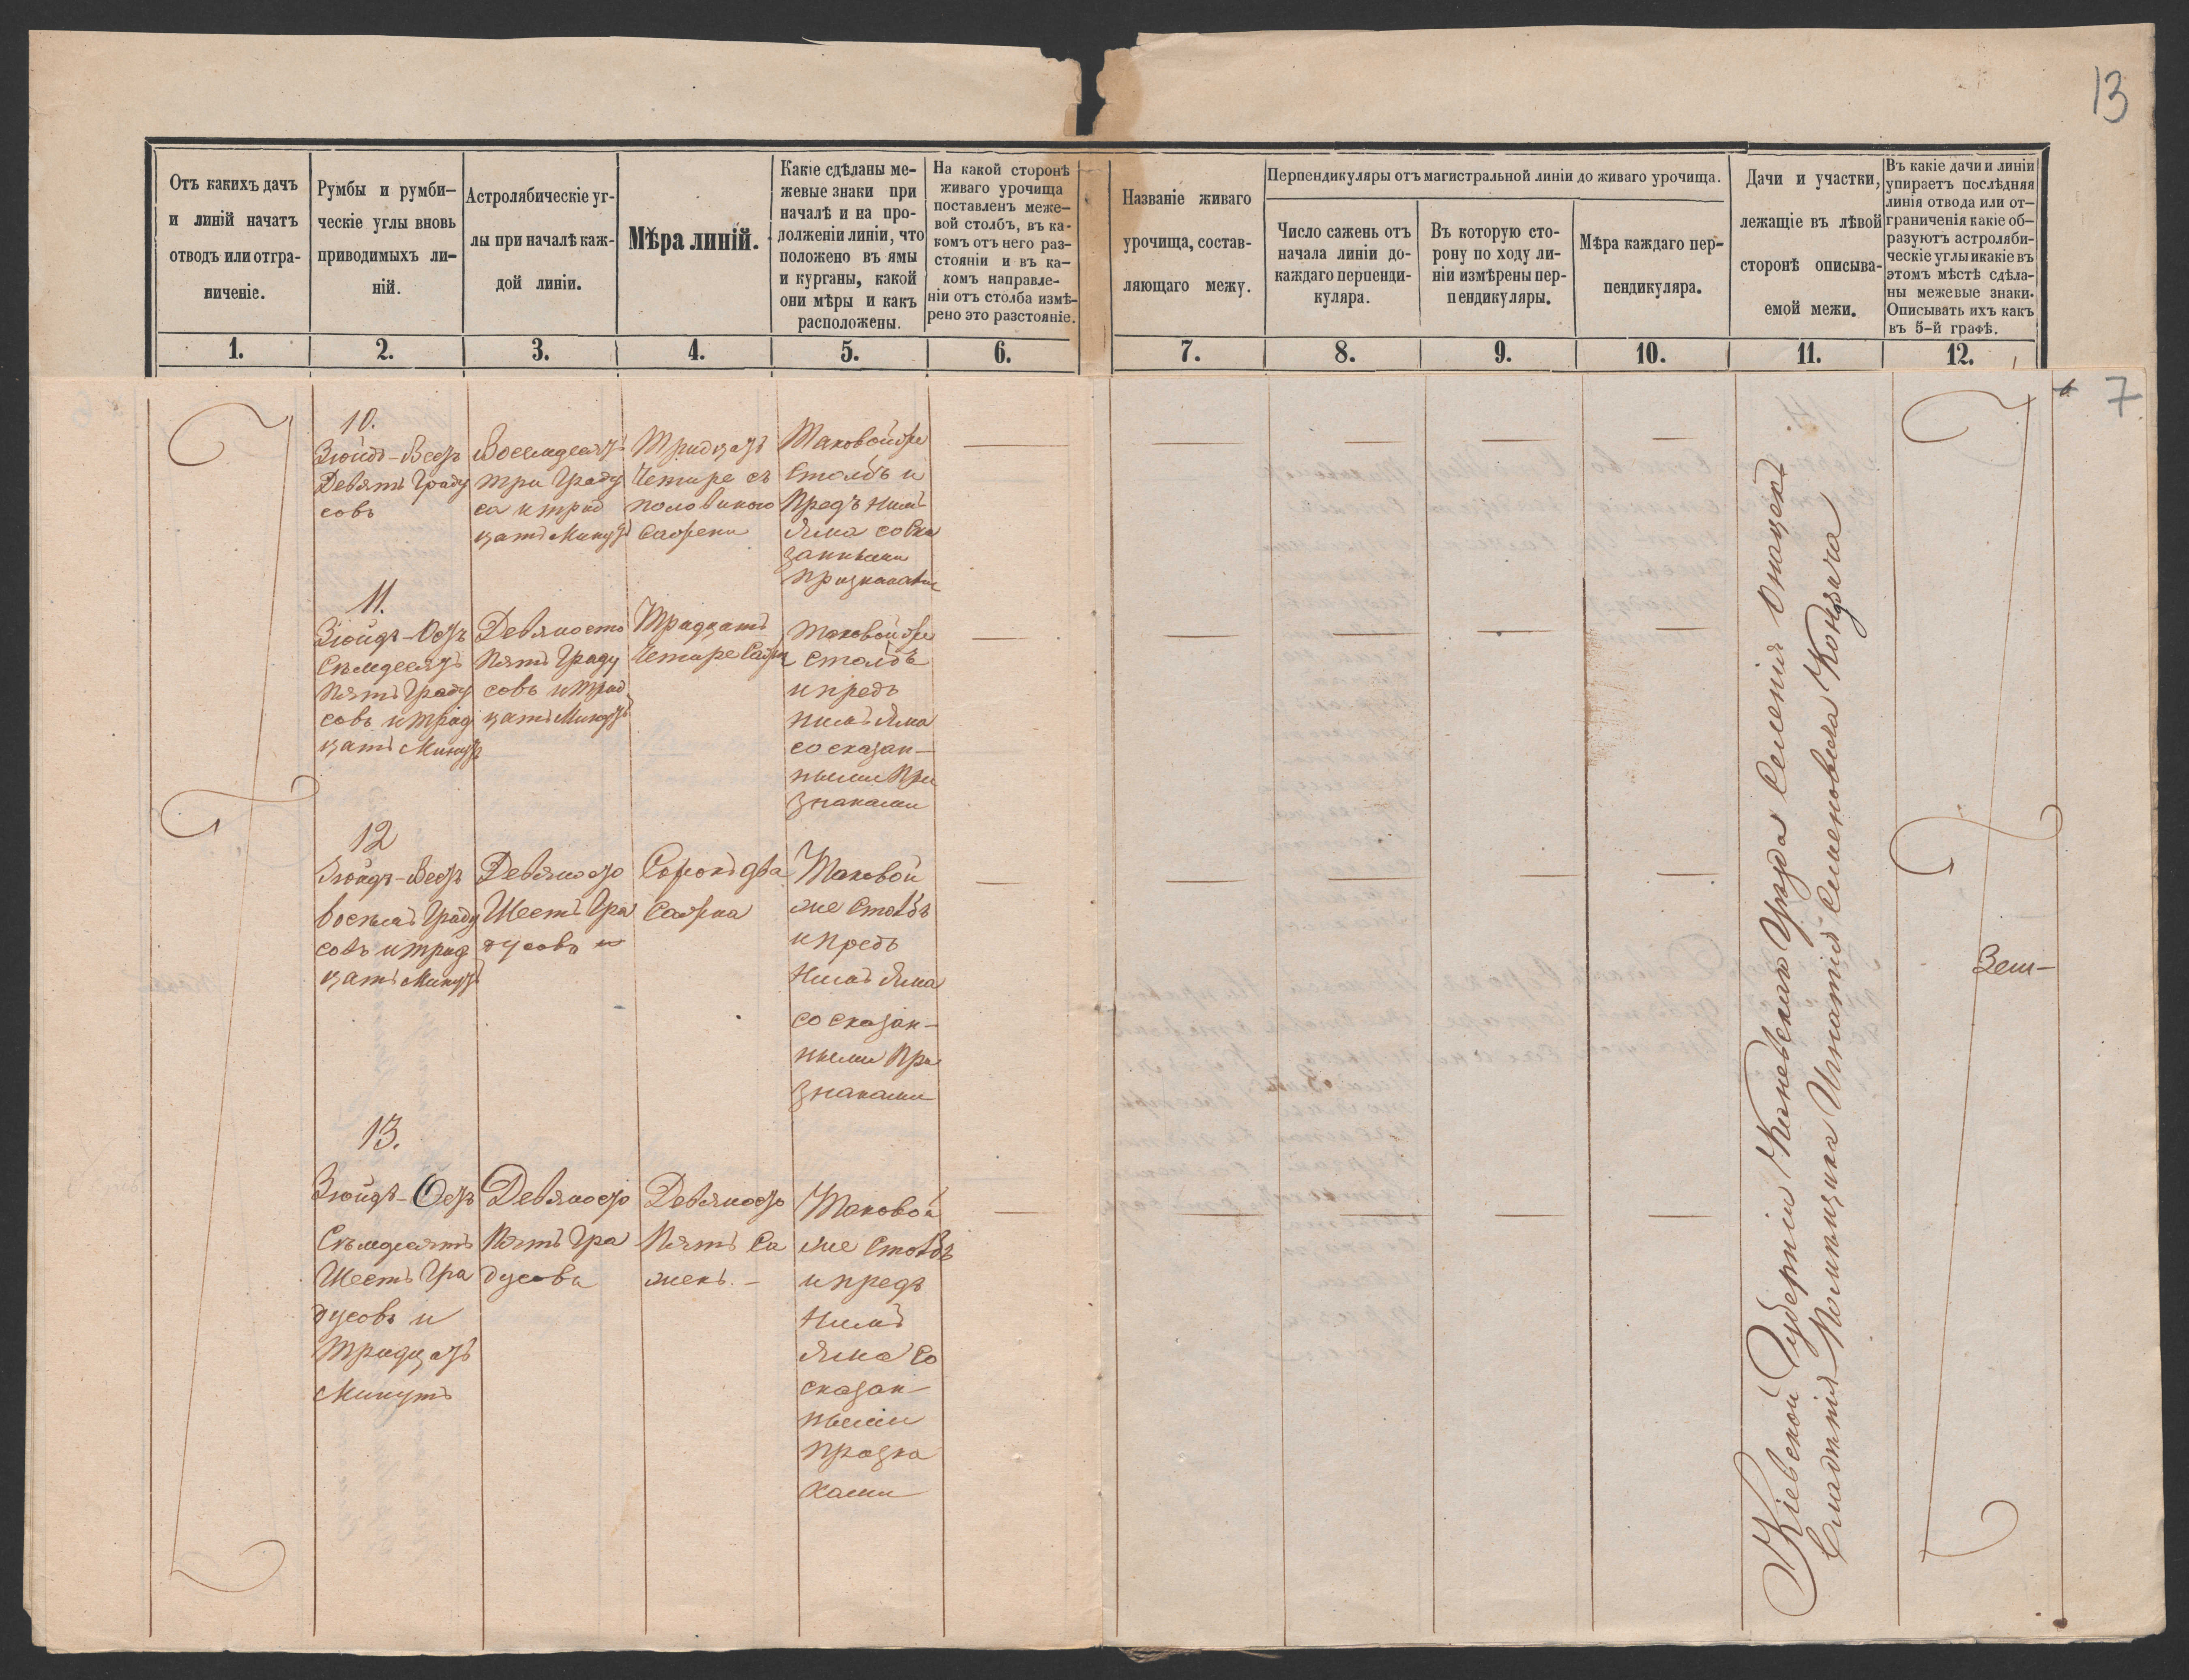 13
Отъ какихъ дачъ
и линій начатъ
отводъ или отгра-
ниченіе.
Румбы и румби-
ческіе углы вновь
приводимыхъ ли-
ній.
Астролябическіе уг-
лы при началѣ каж-
дой линіи.
Мѣра линій.
Какіе сдѣланы ме-
жевые знаки при
началѣ и на про-
долженіи линіи, что
положено въ ямы
и курганы, какой
они мѣры и какъ
расположены.
На какой сторонѣ
живаго урочища
поставленъ меже-
вой столбъ, въ ка-
комъ отъ него раз-
стояніи и въ ка-
комъ направле-
ніи отъ столба измѣ-
рено это разстояніе.
Названіе живаго
урочища, состав-
ляющаго межу.
Перпендикуляры отъ магистральной линіи до живаго урочища.
Число сажень отъ
начала линіи до-
каждаго перпенди-
куляра.
Въ которую сто-
рону по ходу ли-
ніи измѣрены пер-
пендикуляры.
Мѣра каждаго пер-
пендикуляра.
Дачи и участки,
лежащіе въ лѣвой
сторонѣ описыва-
емой межи.
Въ какіе дачи и линіи
упираетъ послѣдняя
линія отвода или от-
граниченія какіе об-
разуютъ астроляби-
ческіе углы и какіе въ
этомъ мѣстѣ сдѣла-
ны межевые знаки.
Описывать ихъ какъ
въ 5-й графѣ.
1.
2.
3.
4.
5.
6.
7.
8.
9.
10.
11.
12.
7
10.
Зюйдъ-Вестъ
Девять Граду
совъ
Восемдесятъ
три Граду
са и трид
цать Минутъ
Тридцать
Четыре съ
половиною
Сажени
Таковой же
Столбъ и
Предъ нимъ
Яма со ска
занными
признаками
11.
Зюйдъ-Остъ
Семдесятъ
Пять Граду
совъ и трид
цать Минутъ
Девяносто
Пять Граду
совъ и трид
цать Минутъ
Тридцать
Четыре Сажня
Таковой же
столбъ
и предъ
нимъ Яма
со сказан-
ными При
знаками
12
Зюйдъ-Вестъ
восемь Граду
совъ и трид
цать Минутъ
Девяносто
Шесть Гра
дусовъ
Сорокъ два
Сажна
Таковой
же Столбъ
и предъ
Нимъ Яма
со сказан-
ными При
знаками
13.
Зюйдъ-Остъ
Семдесять
Шесть Гра
дусовъ и
Тридцать
Минутъ
Девяносто
Пять Гра
дусовъ
Девяносто
Пять Са
жень. -
Таковой
же Столбъ
и предъ
Нимъ
Яма со
сказан
ными
призна
ками
Кіевской Губерніи Каневскаго Уѣзда Селенія
Помищика Игнатія Семеновича